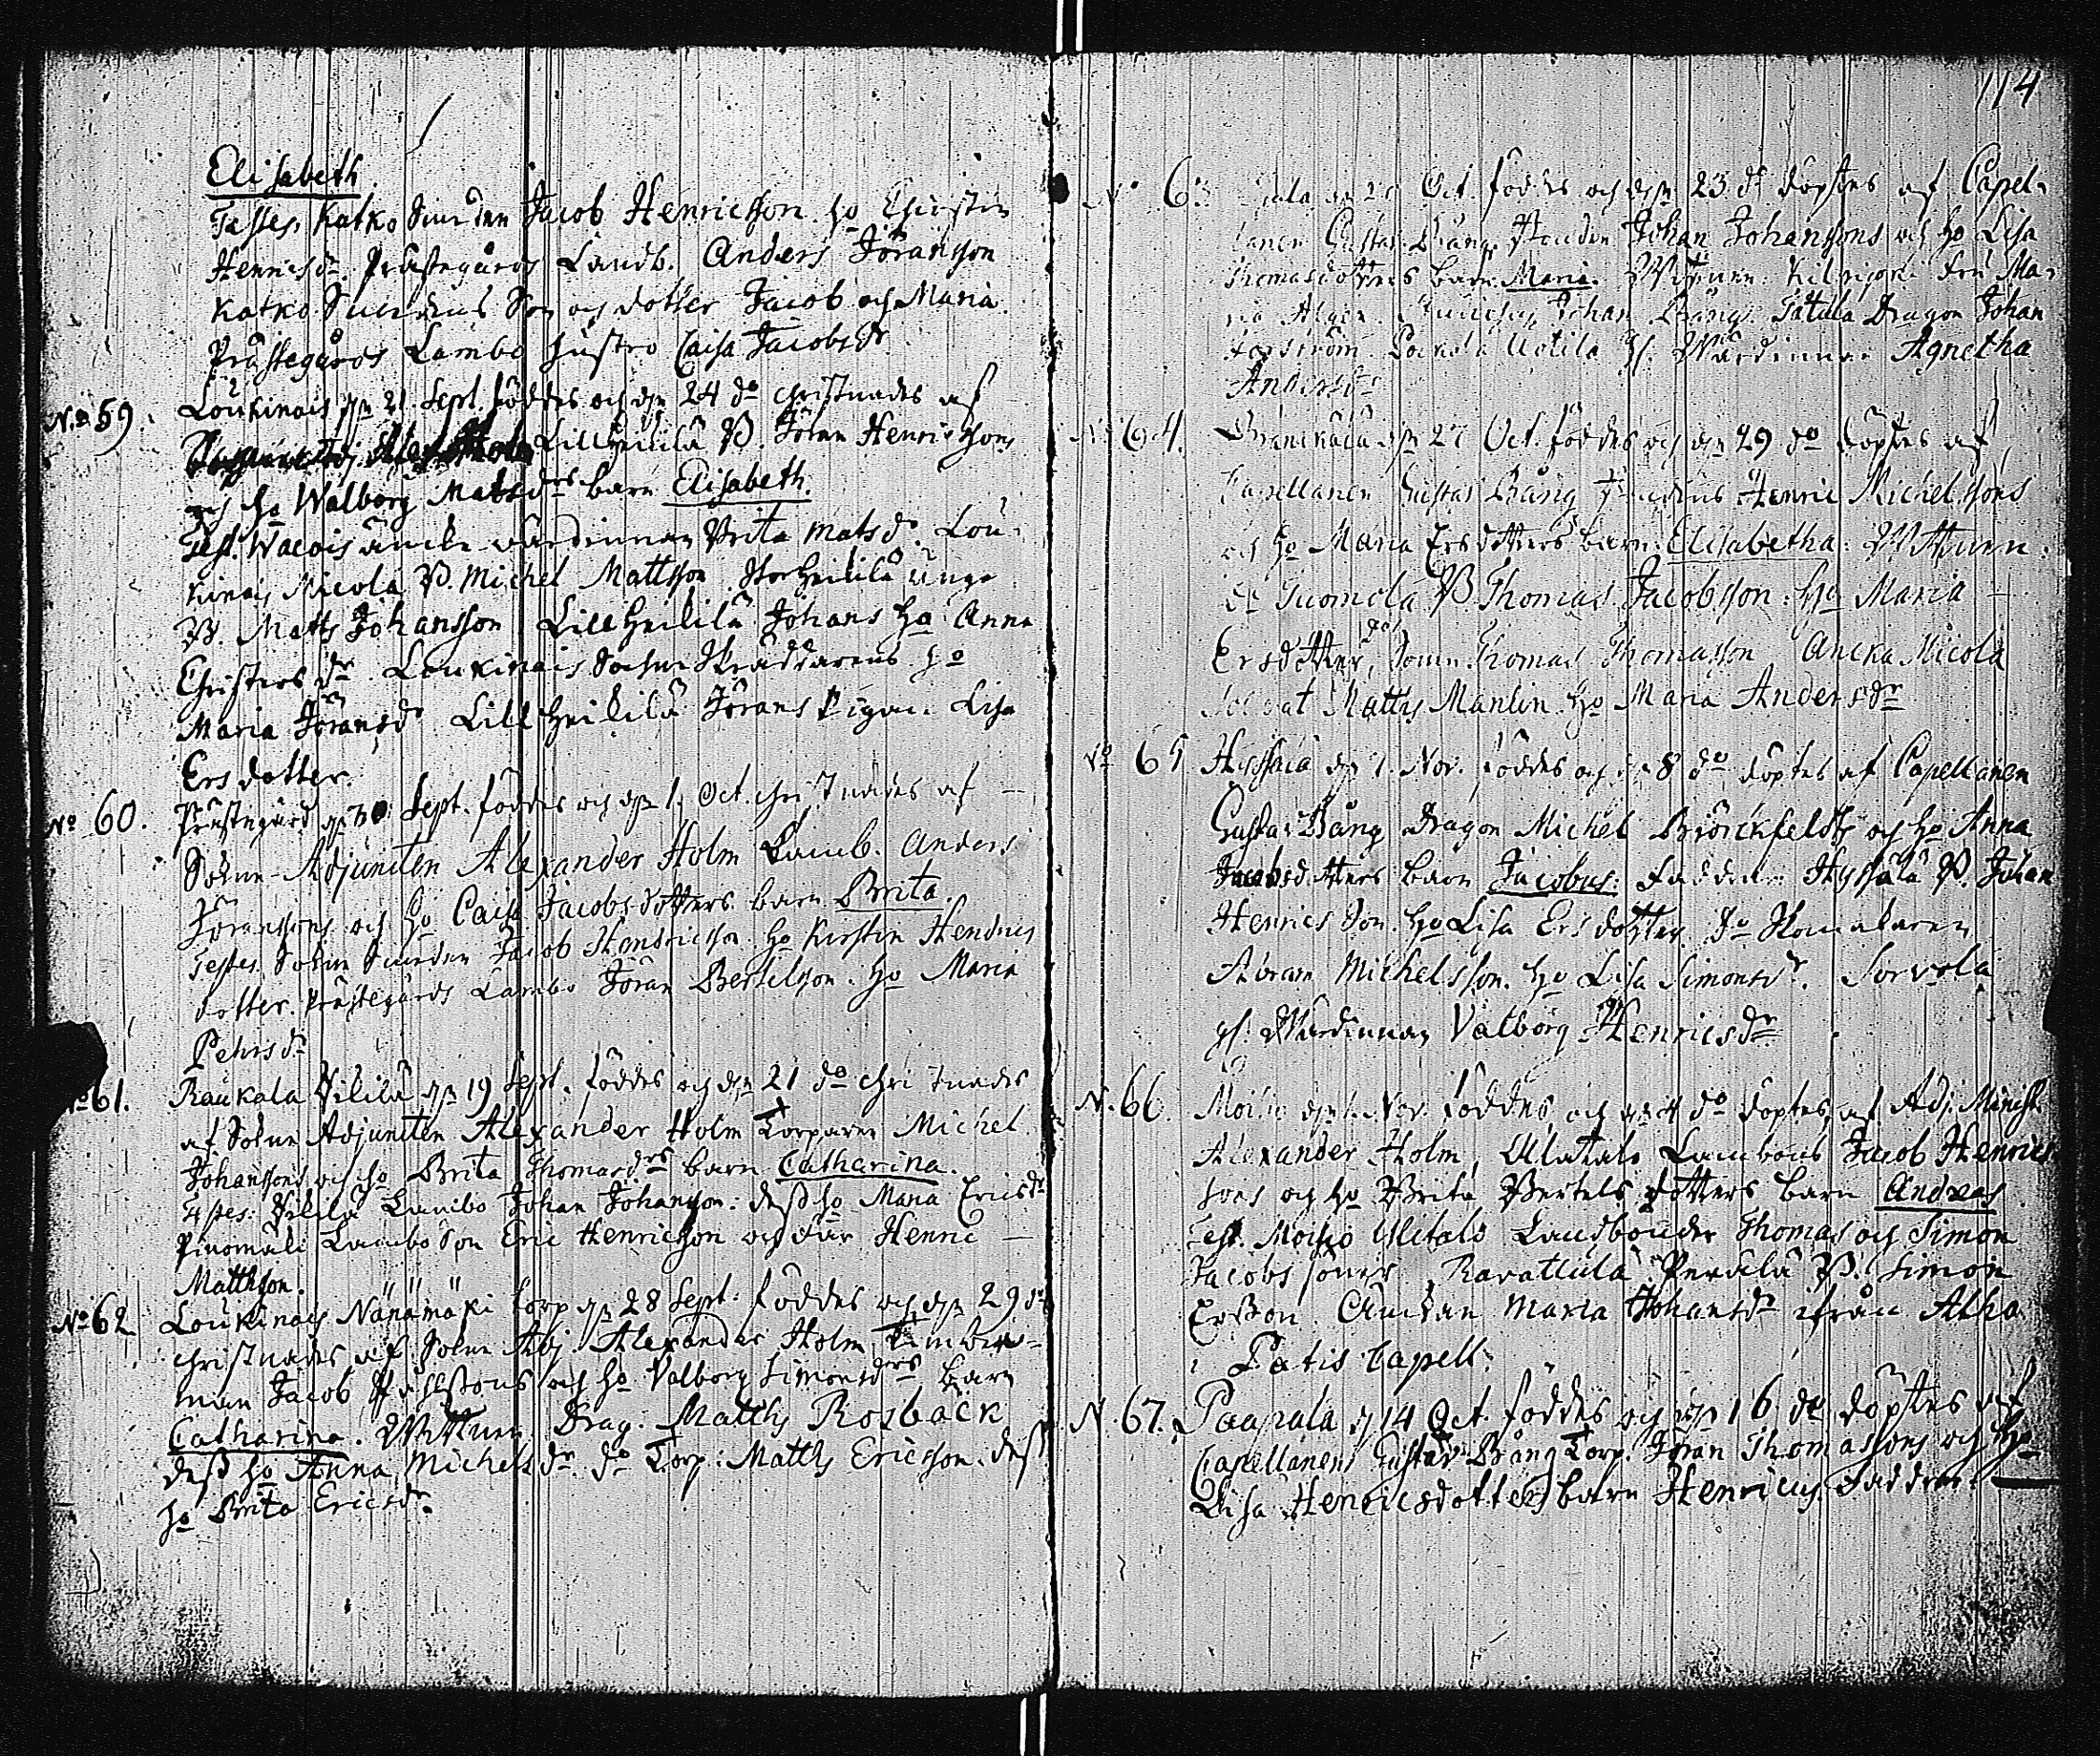 Elisabeth
Testes. Katko Jacob Henricsson ho Christin
Henricsdr. Prästegårds Landb. Anders Jöransson
Katko Son och dotter Jacob och Maria.
Prästegårds Lambo hustro Caisa Jacobsdr
No 59. Loukinais dn 21. Sept. föddes och dn 24 do christnades af
Lill Heikilä B. Jöran Henricssons
och ho Walborg Matsdrs barn Elisabeth.
Test. wärdinnan Brita Matsdr. Lou-
kinais Nicola B. Michel Mattsson Stor Heikilä unge
B. Matts Johansson. Lill Heikilä Johans ho Anna
Christersdr. Loukinais Sochne Skräddarens ho
Maria Jöransdr Lill Heikilä Jörans Pigan Lisa
Ersdotter.
No 60. Prästegård dn 30 Sept. föddes och dn 1. Oct. christnades af
Sokne-Adjuncten Alexander Holm Lamb. Anders
Jöranssons och ho Caisa Jacobsdotters barn Brita.
Testes Sokne Jacob Hendricsson ho Kirstin Hendrics
dotter. Prästegårds Lambo Jöran Bertelsson. ho Maria
Pehrsdr
No 61. Raukala Pililä dn 19 Sept. föddes och dn 21 do christnades
af Sokne Adjuncten Alexander Holm Torparen Michel
Johanssons och ho Brita Thomasdrs barn Catharina.
Testes: Pililä Lambo Johan Johansson: dess ho Maria Ericsdr
Lambo Son Eric Henricsson och Henric
Mattsson.
No 62 Loukinais Nänämäki torp dn 28 Sept: föddes och dn 29 do
christnades af Sokne Adj. Alexander Holm Timber-
man Jacob och ho Valborg Simonsdrs barn
Catharina. Wittnen Drag: Matths Rosbäck
dess ho Anna Michelsdr. do Torp: Matths Ericsson. dess
ho Brita Ericsdr.
114
No 6 Oct. föddes och dn 23 do döptes af Capel-
lanen Gustav Bång Johan Johanssons och ho Lisa
Thomasdotters barn Maria. Wittnen: Ma-
ria Johan Bång. Tatula Dragon Johan
Uotila gl. Wärdinnan Agnetha
Andersdr
No 64. dn 27 Oct. föddes och dn 29 do döptes af
Capellanen Gustav Bång Henric Michelssons
och ho Maria Ersdotters barn: Elisabetha: Wittnen.
Tuomola B Thomas Jacobsson. ho Maria
Ersdotter, Sonen Thomas Thomasson Ancka Nicola
Soldat Matths Manlin ho Maria Andersdr
No 65 dn 7. Nov. föddes och dn 8 do döptes af Capellanen
Gustav Bång Dragon Michel Börckfeldts och ho Anna
Jacobsdotters barn Jacobus: Faddrar B. Johan
Henrics Son. ho Lisa Ersdotter. do Skomakaren
Abram Michelsson. ho Lisa Simonsdr. Sorvola
gl. Wärdinnan Valborg Henricsdr
N. 66. Moisio dn 1. Nov. föddes och dn 4 do döptes af Adj. Minist.
Alexander Holm, Alatalo Lambons Jacob Henrics
sons och ho Brita Bertelsdotters barn Andreas
Test. Moisio Ylitalo Landbönder Thomas och Simon
Jacobs söner Ravattula Perälä B. Simon
Ersson Änckan Maria Johansdr ifrån Atha
Patis Capell.
N. 67. Paapala d 14 Oct. föddes och dn 16 do döptes af
Capellanen Gustav Bång Torp. Jöran Thomassons och ho
Lisa Henricsdotters barn Henricus. Faddrar.